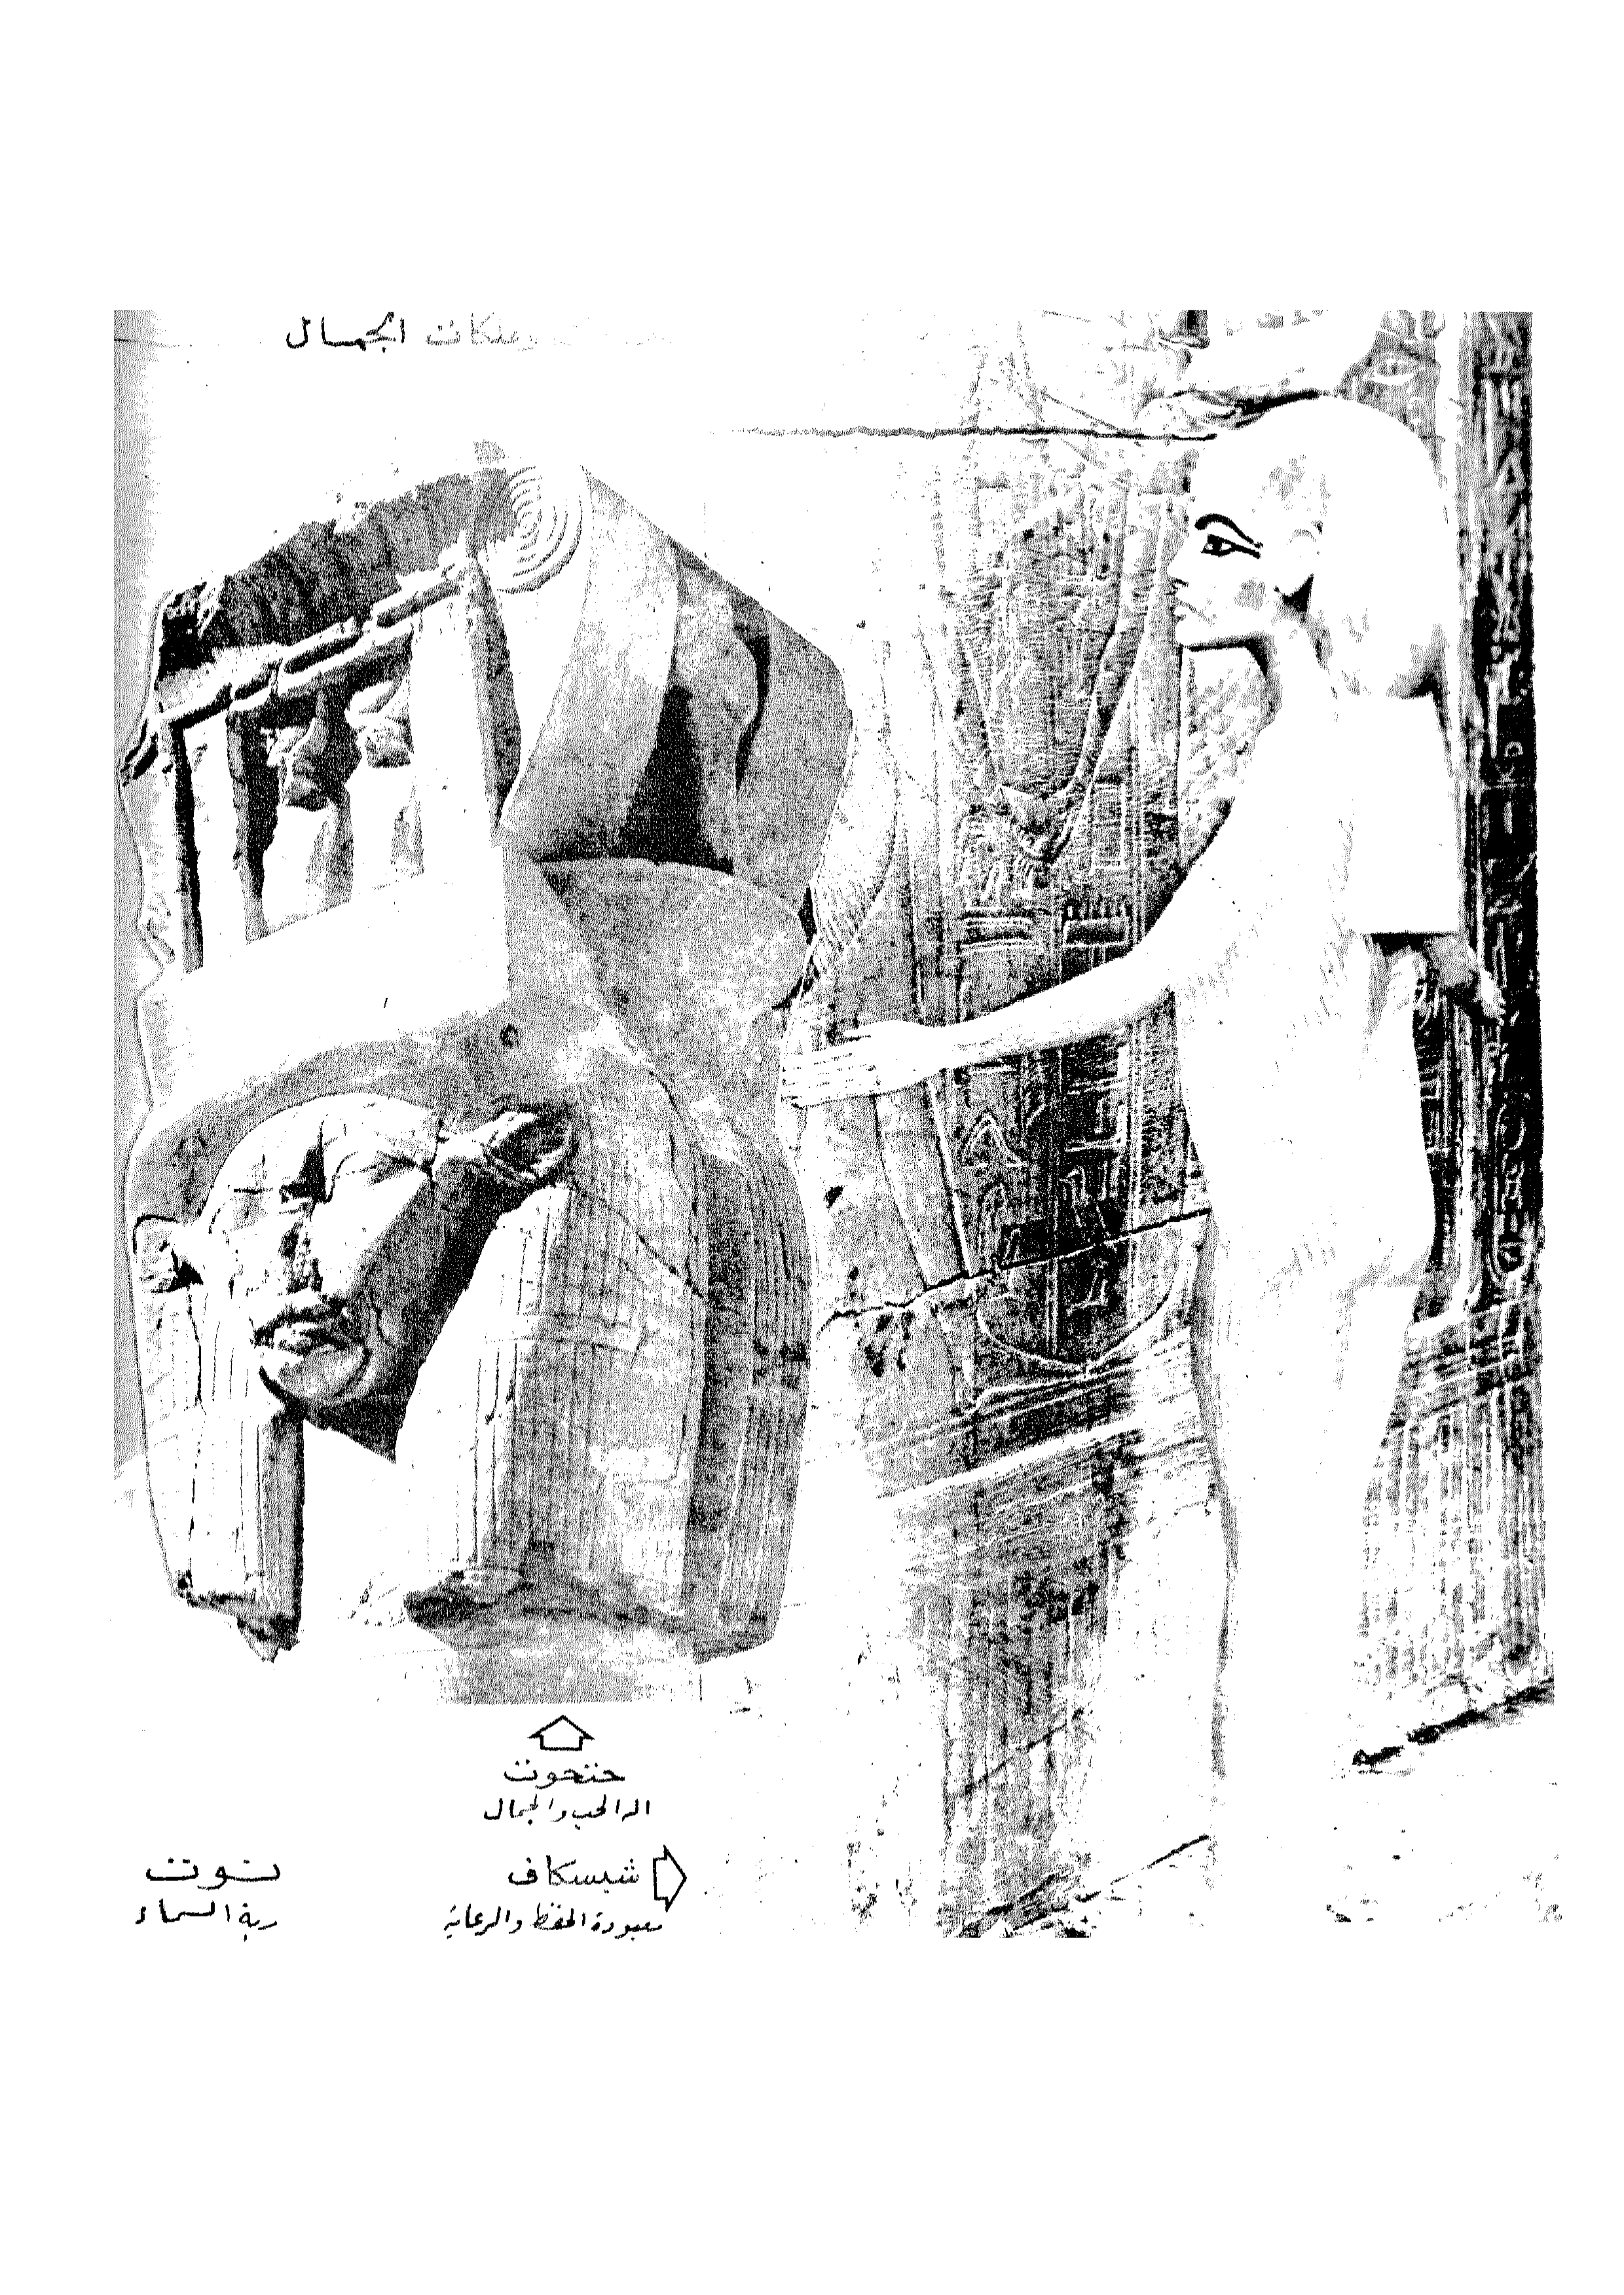 وملكات الجمال
حتحوت
اله الحب والجمال
شبسكاف
معبودة الحفظ والرعاية
نوت
ربة السماء